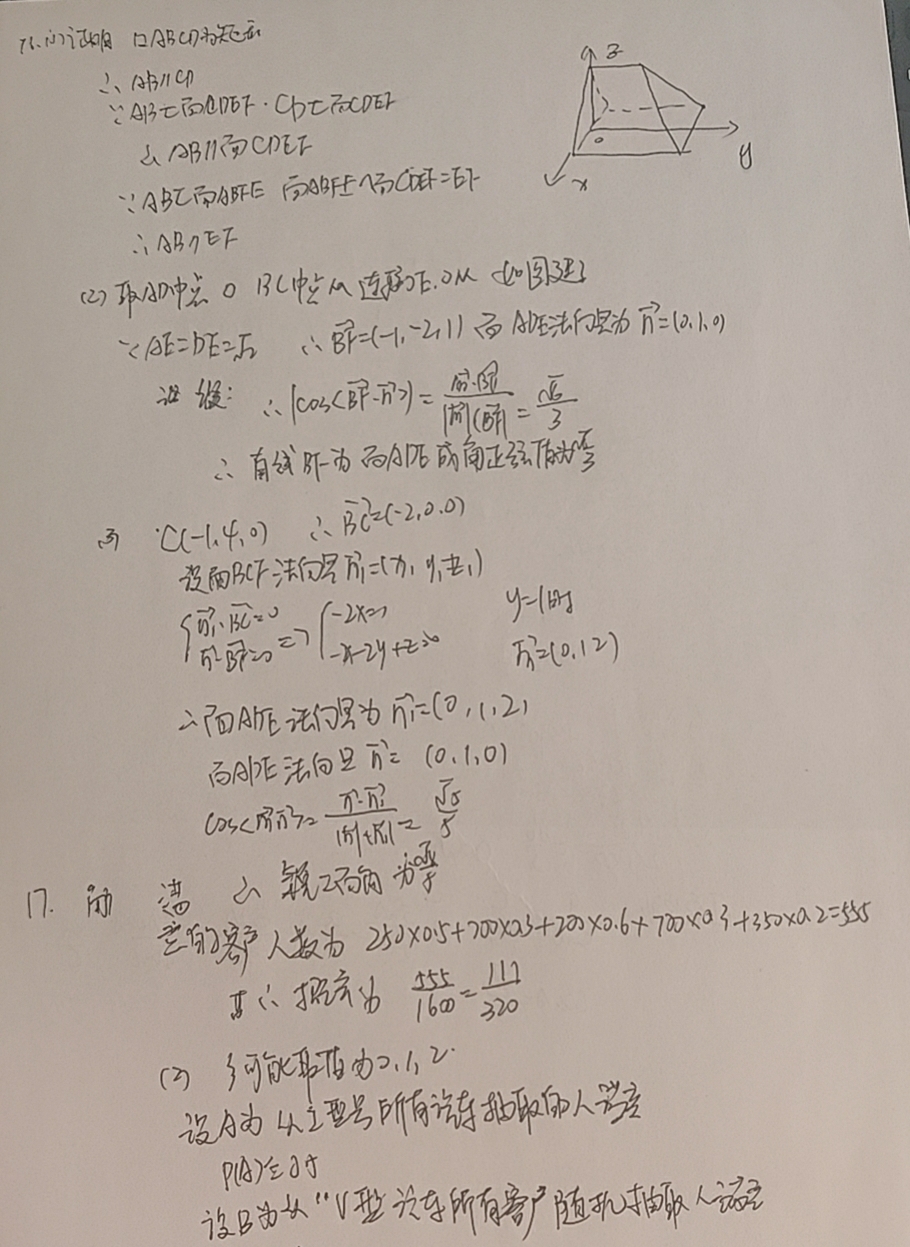 16.(1)证明 □ABCD为矩形
∴ AB//CD
∵ AB⊄面CDEF·CD⊂面CDEF
∴ AB//面CDEF
∵ AB⊂面ABFE 面ABFE∩面CDEF=EF
∴ AB//EF
z
o
x
y
(2) 取AD中点 O BC中点M 连接OE.OM 如图建
∵ AE=DE=√2 ∴ BF→=(-1,-2,1) 面ADE法向量为 n→=(0,1,0)
∴ |cos<BF→·n→>|= n→·BF→/|n→||BF→| = √6/3
∴ 直线BF与面ADE成角正弦值为√6/3
(3) C(-1,4,0) ∴ BC→=(-2,0,0)
设面BCF法向量 n₁→=(x₁,y₁,z₁)
{n₁→·BC→=0 n→·BF→=0 => {-2x=0 -x-2y+z=0 y=1时 n₁→=(0,1,2)
∴ 面 法向量为 n₁→=(0,1,2)
面ADE法向量 n→=(0,1,0)
cos<n→,n₁→>= n→·n₁→/|n→|·|n₁→| = √5/5
∴ 锐二面角为√5/5
17. 满
意的客户人数为 250×0.5+700×0.3+200×0.6+700×0.3+350×0.2=555
∴ 概率为 555/1600=111/320
(2) ξ可能取值为0,1,2.
设A为从Ⅰ型号所有汽车抽取的人满意
P(A)=0.5
设B为从"V型汽车所有客户随机抽取人满意